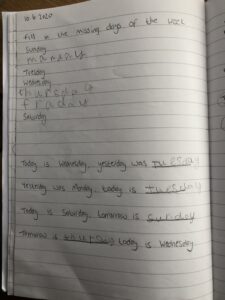 10.6.2020
Fill in the missing days of the week
Sunday
monday
Tuesday
Wednesday
thursday
friday
Saturday
Today is Wednesday, yesterday was tuesday
Yesterday was Monday, today is tuesday
Today is Saturday, tomorrow is sunday
Tomorrow is thursday today is Wednesday.